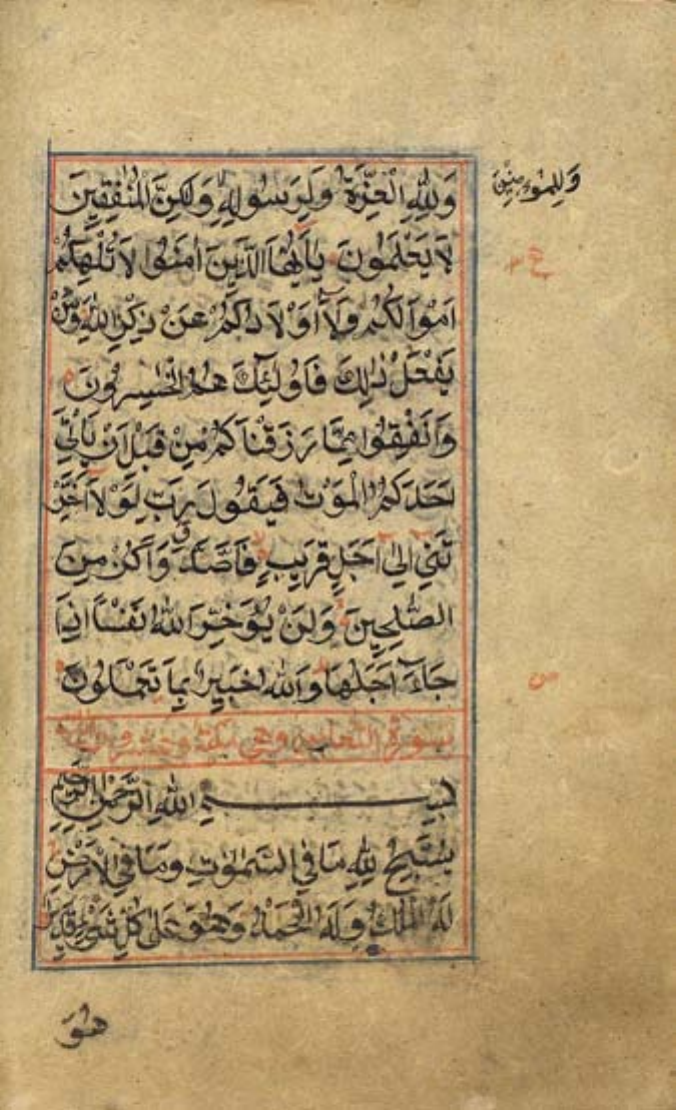 وَلِلّٰهِ الْعِزَّةُ وَلِرَسُولِهٖ وَلٰكِنَّ الْمُنٰفِقِينَ
وَلِلْمُؤْمِنِينَ
لَا يَعْلَمُونَ يٰاَيُّهَا الَّذِينَ اٰمَنُوا لَا تُلْهِكُمْ
ع
اَمْوَالُكُمْ وَلَآ اَوْلَادُكُمْ عَنْ ذِكْرِ اللّٰهِ وَمَنْ
يَفْعَلْ ذٰلِكَ فَاُولٰٓئِكَ هُمُ الْخٰسِرُونَ
وَاَنْفِقُوا مِمَّا رَزَقْنَاكُمْ مِنْ قَبْلِ اَنْ يَأْتِيَ
اَحَدَكُمُ الْمَوْتُ فَيَقُولَ رَبِّ لَوْلَا اَخَّرْ
تَنِي اِلٰى اَجَلٍ قَرِيبٍ فَاَصَّدَّقَ وَاَكُنْ مِنَ
الصّٰلِحِينَ وَلَنْ يُؤَخِّرَ اللّٰهُ نَفْسًا اِذَا
جَآءَ اَجَلُهَا وَاللّٰهُ خَبِيرٌ بِمَا تَعْمَلُونَ
سورة التغابن وهي
بِسْمِ اللّٰهِ الرَّحْمٰنِ الرَّحِيمِ
يُسَبِّحُ لِلّٰهِ مَا فِي السَّمٰوٰتِ وَمَا فِي الْاَرْضِ
لَهُ الْمُلْكُ وَلَهُ الْحَمْدُ وَهُوَ عَلٰى كُلِّ شَيْءٍ قَدِيرٌ
هُوَ